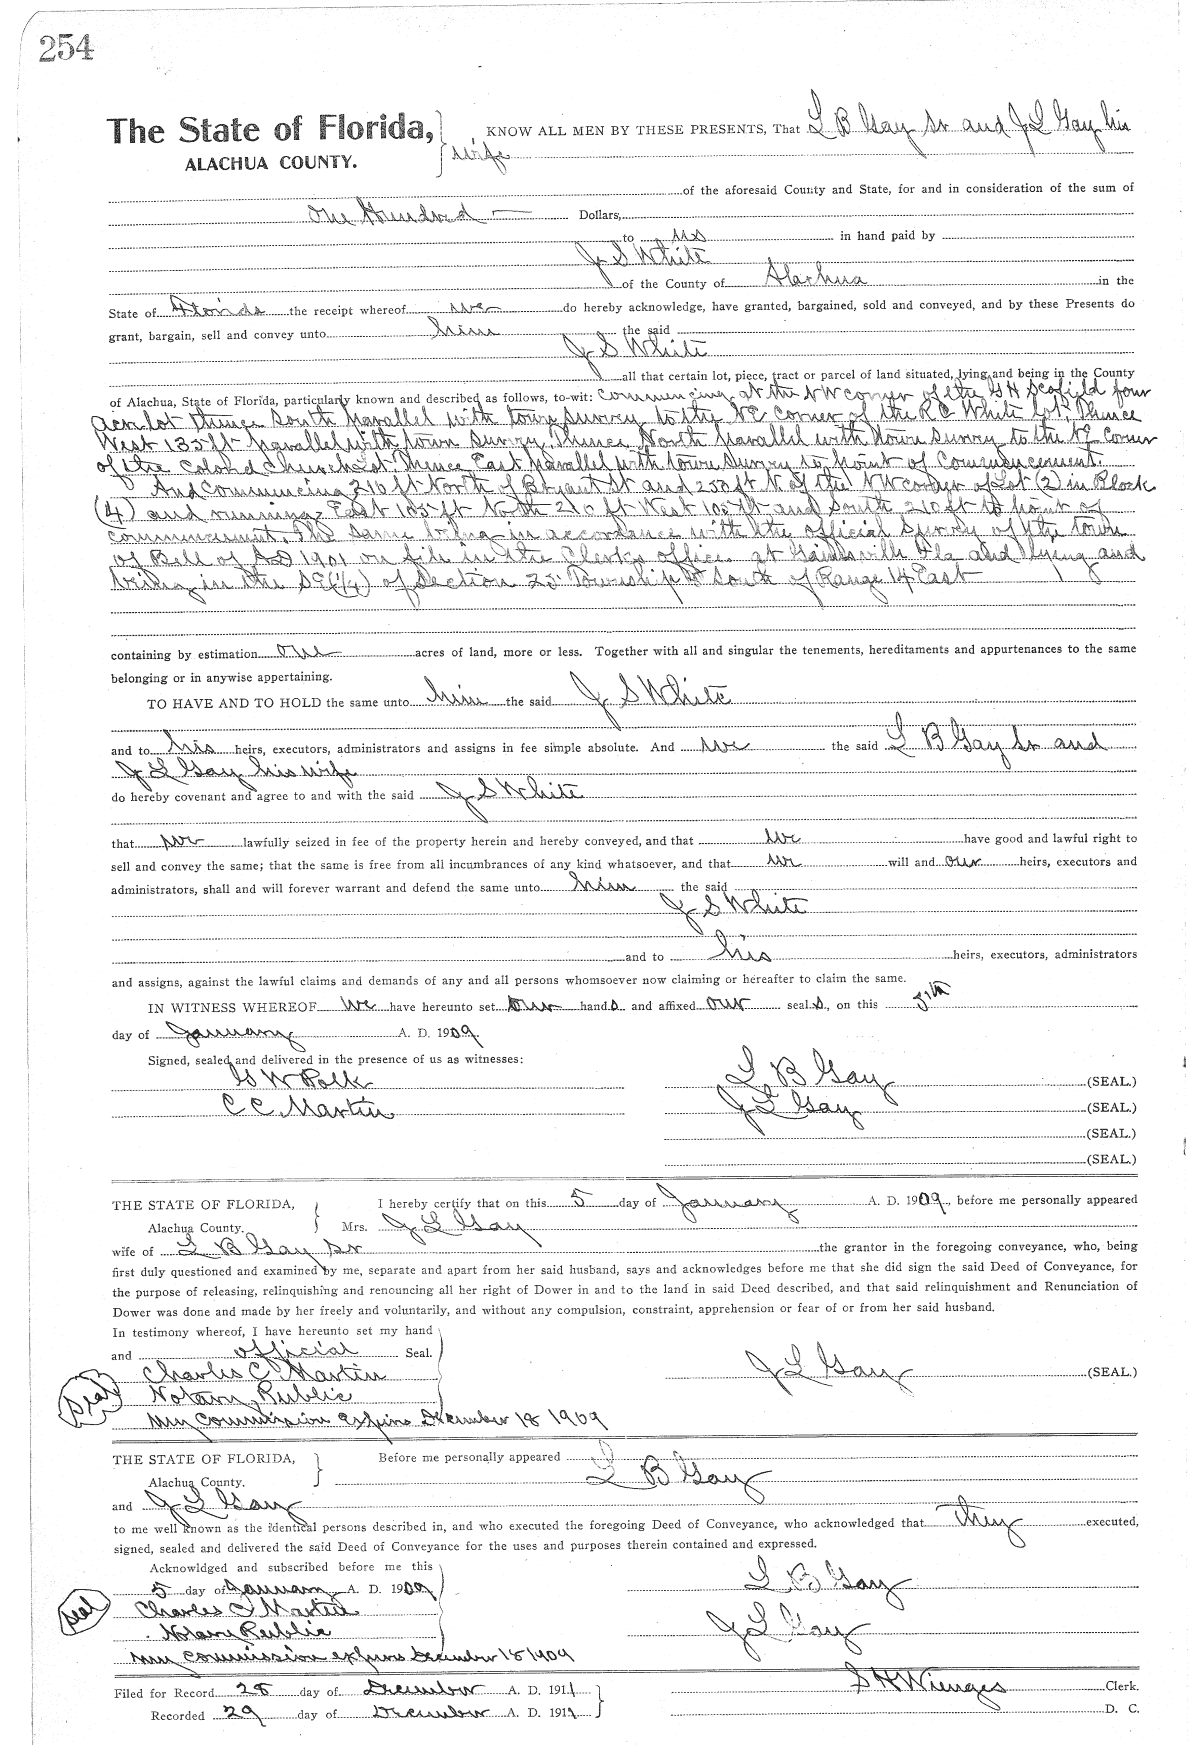 254
The State of Florida, KNOW ALL MEN BY THESE PRESENTS, That L B Gay Sr and J L Gay his
ALACHUA COUNTY. wife
of the aforesaid County and State, for and in consideration of the sum of
One Hundred Dollars,
to us in hand paid by
J S White
of the County of Alachua in the
State of Florida the receipt whereof we do hereby acknowledge, have granted, bargained, sold and conveyed, and by these Presents do
grant, bargain, sell and convey unto him the said
J S White
all that certain lot, piece, tract or parcel of land situated, lying and being in the County
of Alachua, State of Florida, particularly known and described as follows, to-wit: Commencing at the NW corner of the G H Scofield four
acre lot thence South parallel with town survey to the NE corner of the R C White lot Thence
West 135 ft parallel with town survey Thence North parallel with town survey to the NE Corner
of the Colored Church lot. Thence East parallel with town survey to point of Commencement.
And Commencing 210 ft North of Bryant St and 250 ft N of the NW corner of Lot (2) in Block
(4) and running East 105 ft North 210 ft West 105 ft and South 210 ft to point of
commencement. The same being in accordance with the official Survey of the town
of Bell of AD 1901 on file in the Clerks office at Gainesville Fla and lying and
being in the SE (1/4) of Section 25 Township South of Range 14 East
containing by estimation one acres of land, more or less. Together with all and singular the tenements, hereditaments and appurtenances to the same
belonging or in anywise appertaining.
TO HAVE AND TO HOLD the same unto him the said J S White
and to his heirs, executors, administrators and assigns in fee simple absolute. And we the said L B Gay Sr and
J L Gay his wife
do hereby covenant and agree to and with the said J S White
that we lawfully seized in fee of the property herein and hereby conveyed, and that we have good and lawful right to
sell and convey the same; that the same is free from all incumbrances of any kind whatsoever, and that we will and our heirs, executors and
administrators, shall and will forever warrant and defend the same unto him the said
J S White
and to his heirs, executors, administrators
and assigns, against the lawful claims and demands of any and all persons whomsoever now claiming or hereafter to claim the same.
IN WITNESS WHEREOF We have hereunto set our hands and affixed our seals, on this 5th
day of January A. D. 1909
Signed, sealed and delivered in the presence of us as witnesses:
G W Polk L B Gay (SEAL.)
C C. Martin J L Gay (SEAL.)
(SEAL.)
(SEAL.)
THE STATE OF FLORIDA, I hereby certify that on this 5 day of January A. D. 1909, before me personally appeared
Alachua County. Mrs. J L Gay
wife of L B Gay Sr the grantor in the foregoing conveyance, who, being
first duly questioned and examined by me, separate and apart from her said husband, says and acknowledges before me that she did sign the said Deed of Conveyance, for
the purpose of releasing, relinquishing and renouncing all her right of Dower in and to the land in said Deed described, and that said relinquishment and Renunciation of
Dower was done and made by her freely and voluntarily, and without any compulsion, constraint, apprehension or fear of or from her said husband.
In testimony whereof, I have hereunto set my hand
and official Seal.
Charles C Martin J L Gay (SEAL.)
seal Notary Public
My Commission expires December 18 1909
THE STATE OF FLORIDA, Before me personally appeared
Alachua County. L B Gay
and J L Gay
to me well known as the identical persons described in, and who executed the foregoing Deed of Conveyance, who acknowledged that they executed,
signed, sealed and delivered the said Deed of Conveyance for the uses and purposes therein contained and expressed.
Acknowldged and subscribed before me this
5 day of January A. D. 1909 L B Gay
seal Charles C Martin
Notary Public J L Gay
My commission expires December 18 1909
Filed for Record 28 day of December A. D. 1911 S H Wienges Clerk.
Recorded 29 day of December A. D. 1911 D. C.